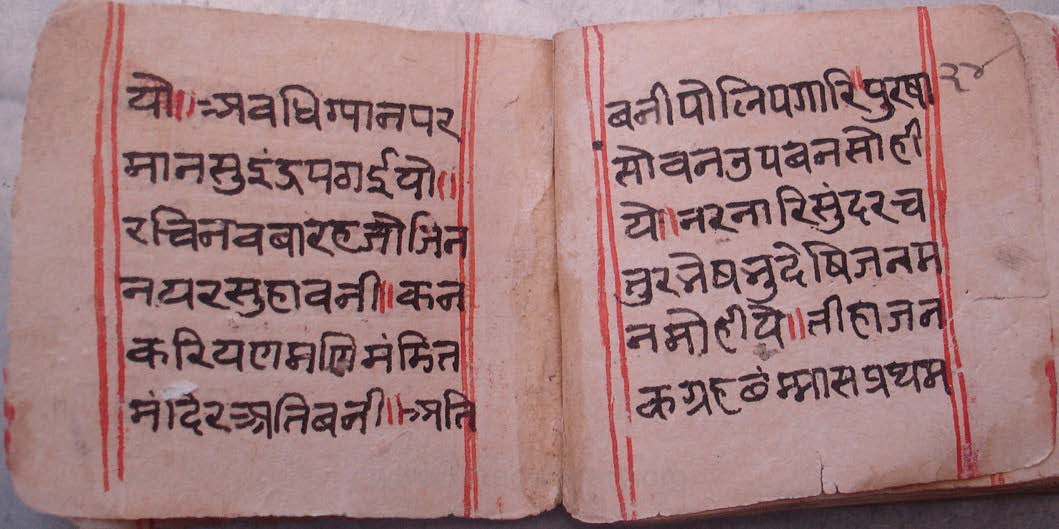 यो॥अवधिग्यानपर
मानसुइंद्रपगईयो॥
रचिनवबारहजोजिन
नयरसुहावनी॥कन
करियणमणिमंमित
मंदिरअतिबनी॥अति
बनीपोलिपगारिपुरषा
२४
सोवनउपबनसोही
ये॥नरनारिसुंदरच
तुरनेषनुदेषिजनम
नमोहीये॥तीहाजन
कग्रहछंम्मासप्रथम